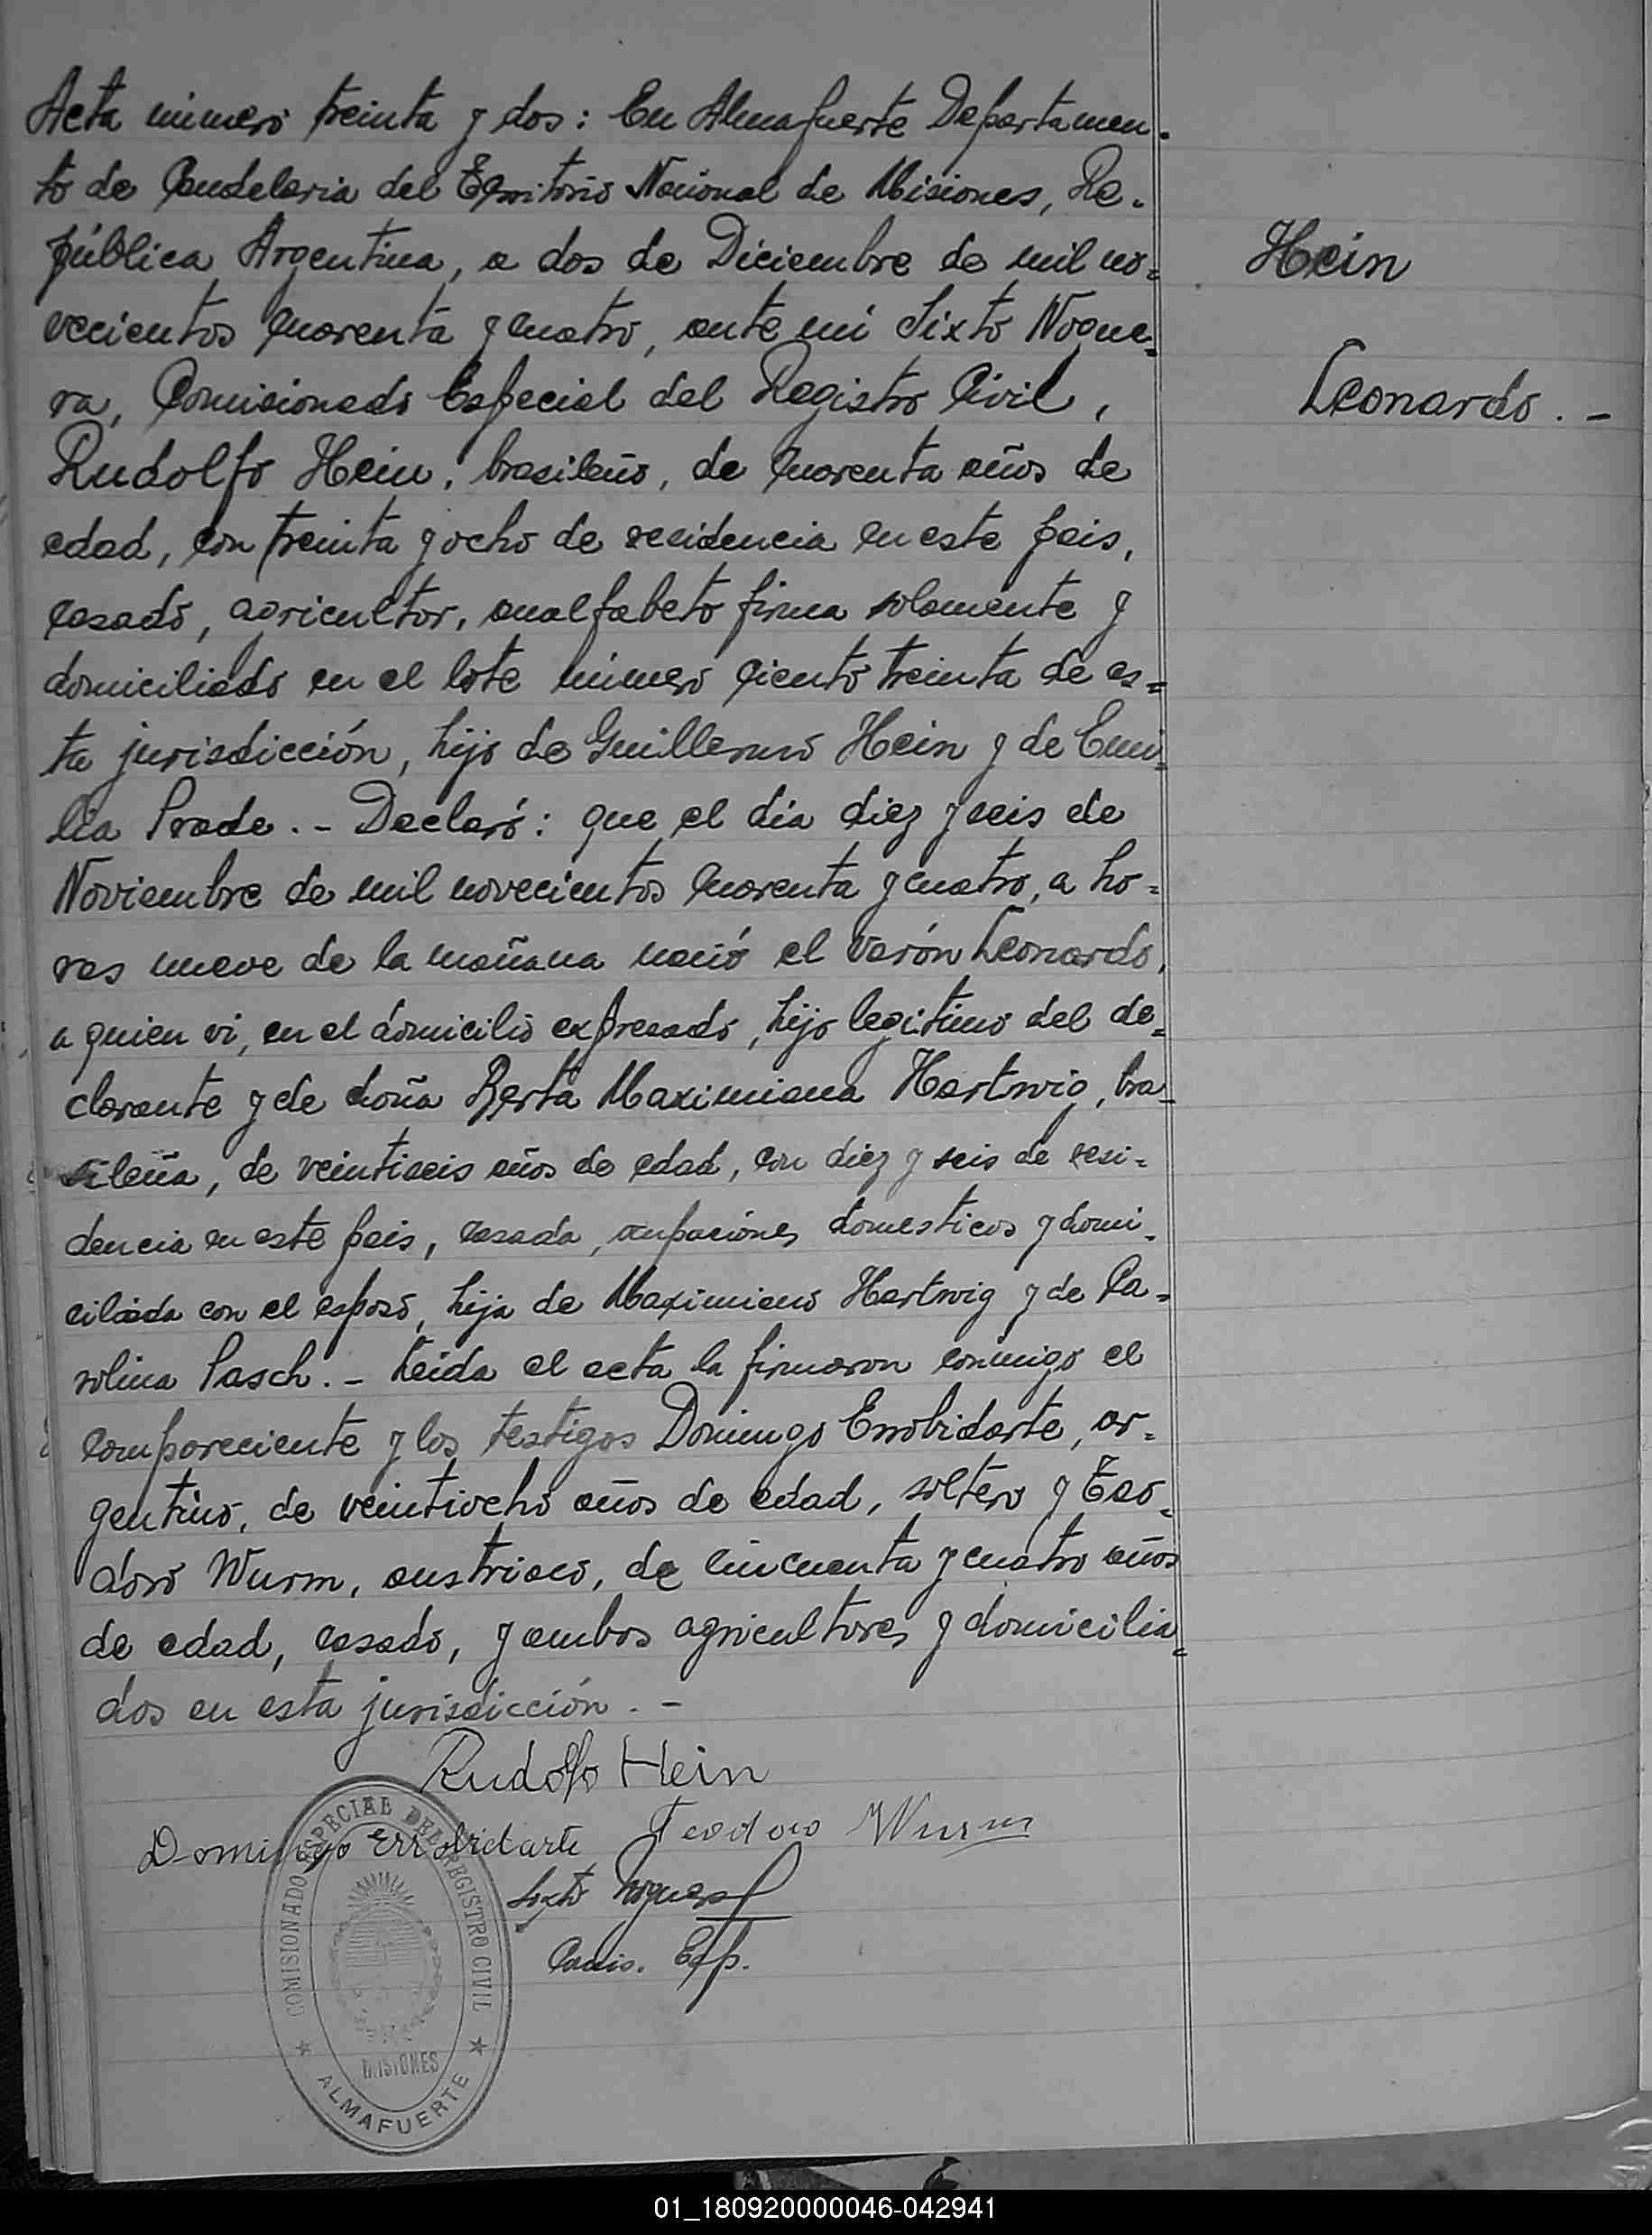 Acta número treinta y dos: En Almafuerte Departamen-
to de Candelaria del Territorio Nacional de Misiones, Re-
pública Argentina, a dos de Diciembre de mil no=
vecientos cuarenta y cuatro, ante mi Sixto Nogue=
ra, Comisionado Especial del Registro Civil,
Rudolfo Hein, brasileño, de cuarenta años de
edad, con treinta y ocho de residencia en este pais,
casado, agricultor, analfabeto firma solamente y
domiciliado en el lote número ciento treinta de es=
ta jurisdicción, hijo de Guillermo Hein y de Emi=
lia Prade.- Declaró: que el día diez y seis de
Noviembre de mil novecientos cuarenta y cuatro, a ho=
ras nueve de la mañana nació el varón Leonardo,
a quien vi, en el domicilio expresado, hijo legitimo del de=
clarante y de doña Berta Maximiana Hartwig, bra=
sileña, de veintiseis años de edad, con diez y seis de resi=
dencia en este pais, casada, ocupaciones domesticos y domi=
ciliada con el esposo, hija de Maximiano Hartwig y de Ca=
rolina Pasch.- Leida el acta la firmaron conmigo el
compareciente y los testigos Domingo Errobidarte, ar=
gentino, de veintiocho años de edad, soltero y Teo=
doro Wurm, austriaco, de cincuenta y cuatro años
de edad, casado, y ambos agricultores y domicilia=
dos en esta jurisdicción.-
Hein
Leonardo.-
Rudolfo Hein
Domingo Errobidarte Teodoro Wurm
Sixto Noguera
Comis. Esp.
COMISIONADO ESPECIAL DEL REGISTRO CIVIL
MISIONES
ALMAFUERTE
01_180920000046-042941